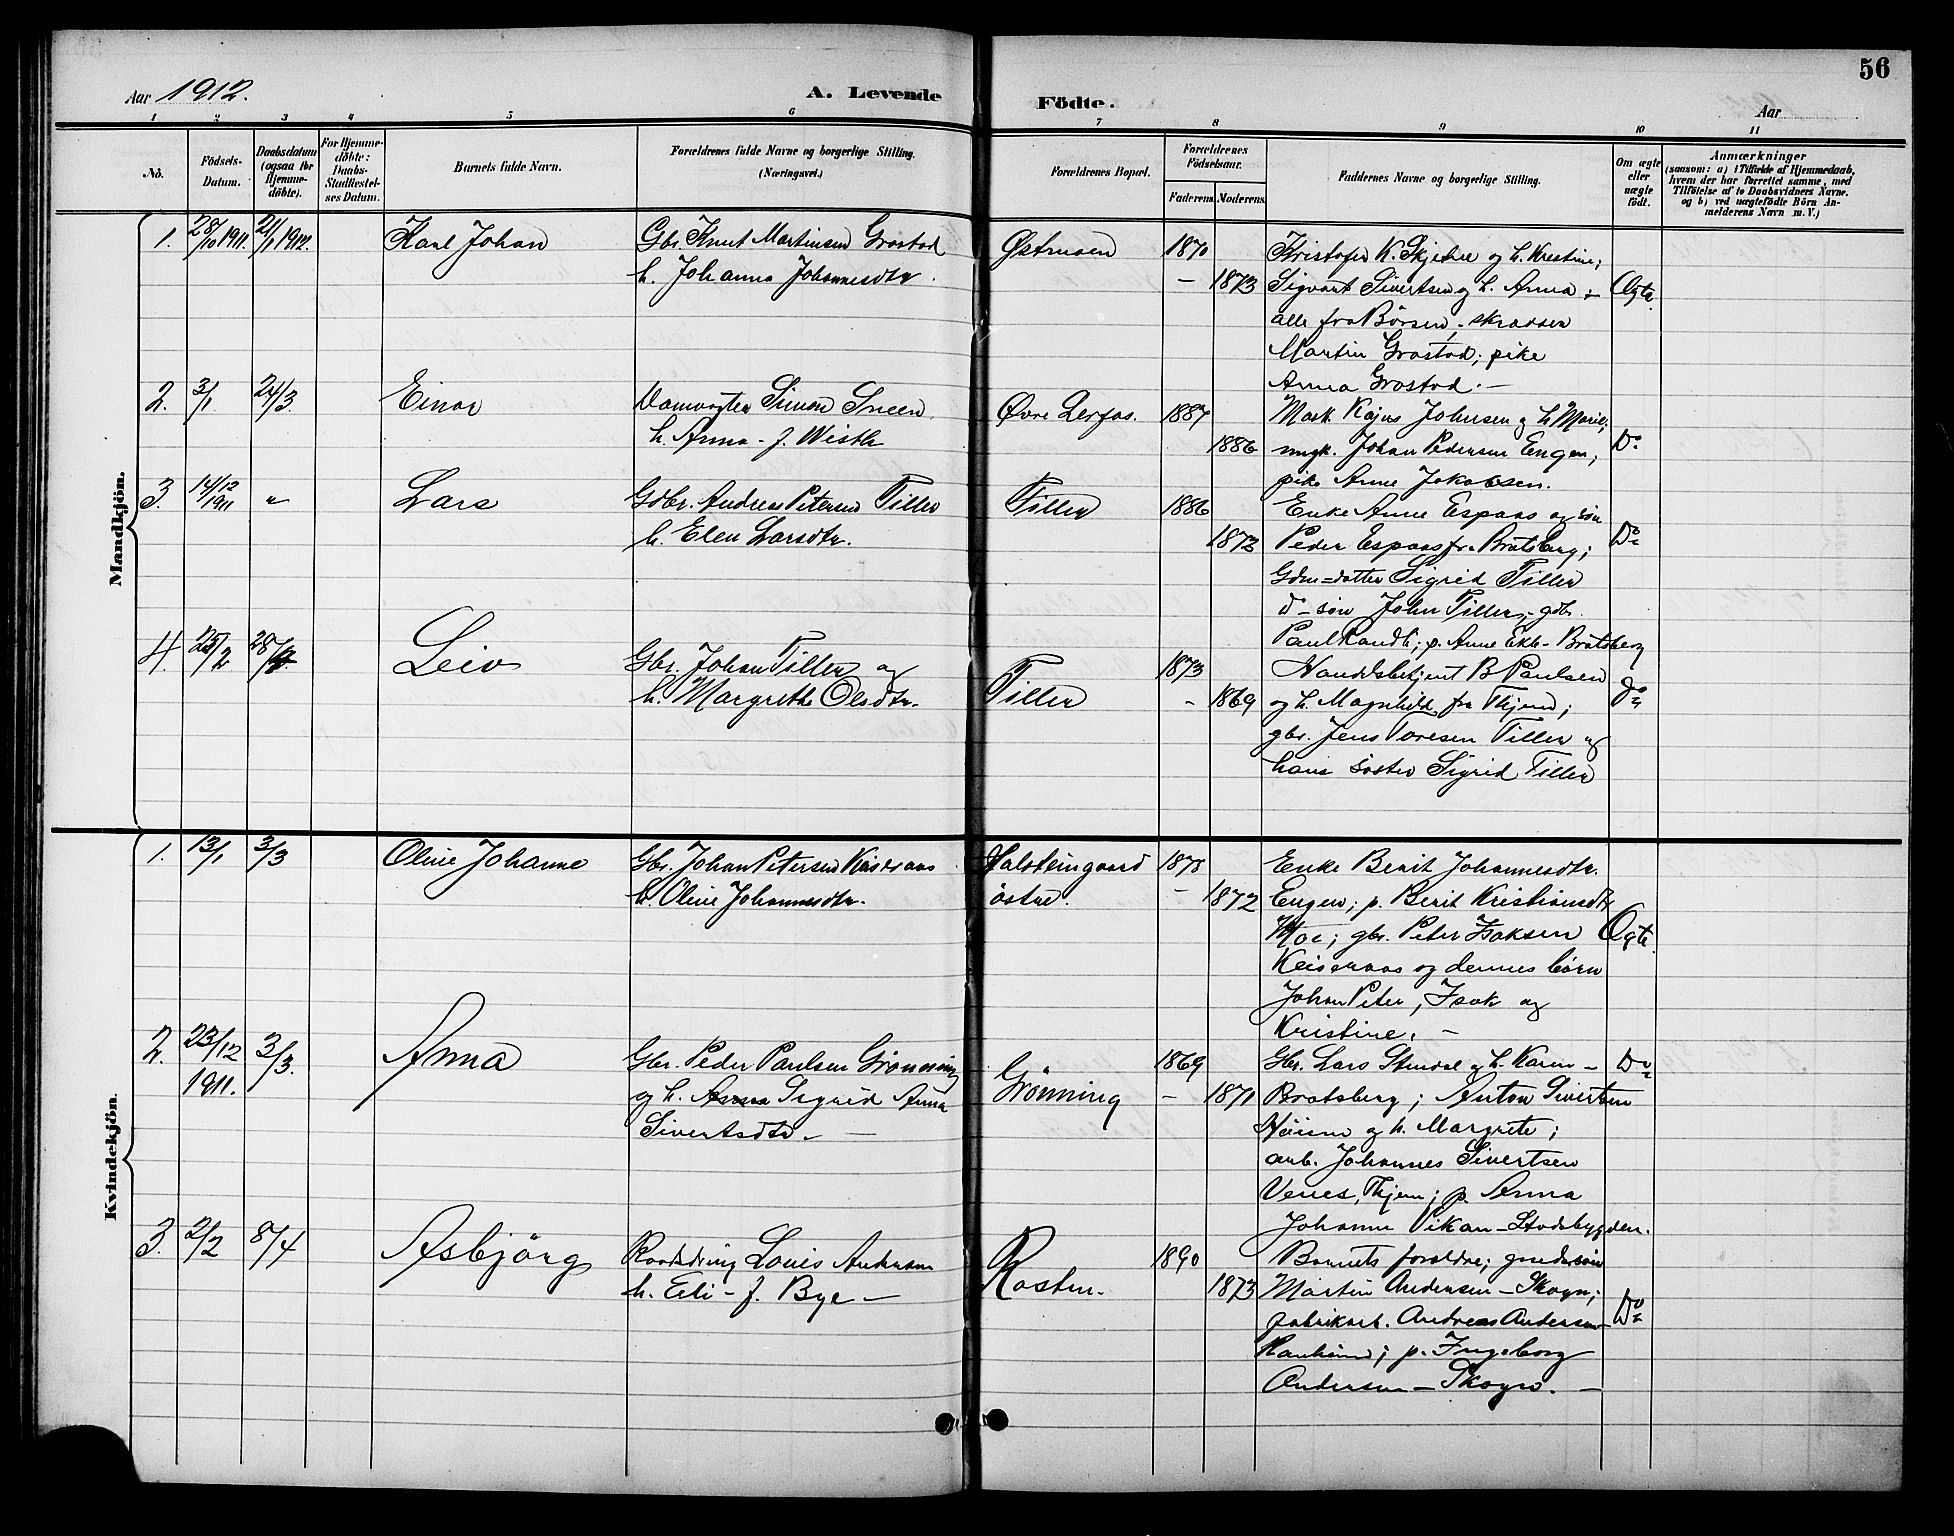 56
Aar 1912.
A. Levende Födte.
Aar
1 2 3 4 5 6 7 8 9 10 11
No.
Födsels-Datum.
Daabsdatum (ogsaa for Hjemme-döbte).
For Hjemme-döbte: Daabs-Stadfæstel-ses Datum.
Barnets fulde Navn.
Forældrenes fulde Navne og borgerlige Stilling. (Næringsvei.)
Forældrenes Bopæl.
Forældrenes Födselsaar.
Faderens. Moderens.
Faddernes Navne og borgerlige Stilling.
Om ægte eller uægte födt.
Anmærkninger (saasom: a) i Tilfælde af Hjemmedaab, hvem der har forrettet samme, med Tilföielse af to Daabsvidners Navne. og b) ved uægtefödte Börn An-melderens Navn m. V.)
Mandkjön.
1. 28/10 1911. 21/1 1912. Karl Johan
Gbr. Knut Martinsen Grostad
h. Johanna Johannesdtr.
Østmoen 1870
- 1873
Kristofer K. Skjetne og h. Kristine;
Sigvart Sivertsen og h. Anna; Ægte
alle fra Börsen; skrædder
Martin Grostad; pike
Anna Grostad. -
2. 3/1. 24/3. Einar
Damvogter Simon Sneen
h. Anna - f. Wisth
Øvre Lerfos. 1887
1886
Mask. Kajus Johnsen og h Marie;
ungk. Johan Pedersen Engen; Do
pike Anne Jakobsen.
3. 14/12 1911 " Lars
Gdbr. Andreas Petersen Tiller
h. Elen Larsdtr.
Tiller 1886
1872
Enke Anne Espaas og sön
Peder Espaas fr. Bratsberg; Do
Gdm=datter Sigrid Tiller
d - sön John Tiller; gdb.
Paul Randli; p. Anne Ekle - Bratsberg
4. 25/2 28/ Leiv
Gbr. Johan Tiller og
h. Margrethe Olsdtr.
Tiller 1873
- 1869
Handelsbetjent B Paulsen
og h. Magnhild fra Thjem; do
gbr. Jens Toresen Tiller og
hans söster Sigrid Tiller
Kvindekjön.
1. 13/1 3/3 Oline Johanne
Gbr. Johan Petersen Keiseraas
h. Oline Johannesdtr.
Halsteingaard
östre. 1878
- 1872
Enke Berit Johannesdtr.
Engen; p. Berit Kristiansdtr
Moe; gbr. Peter Isaksen Ægte
Keiseraas og dennes börn
Johan Peter, Isak og
Kristine. -
2. 23/12 1911. 3/3. Anna
Gbr. Peder Paulsen Grönning
og h. Anna Sigrid Anna
Sivertsdtr. -
Grönning 1869
- 1871
Gbr. Lars Stendal og h. Karen - Do
Bratsberg; Anton Sivertsen
Höiem og h. Margrete;
arb. Johannes Sivertsen
Venes, Thjem; p. Anna
Johanne Vikan - Stadsbygden.
3. 2/2 8/4 Asbjörg
Louis Andersen
h. Eli - f. Bye -
Rosten. 1890
1873
Barnets foreldre; gaardsön
Martin Andersen - Skogn; Do
fabrikarb. Andreas Andersen
Ranheim; p. Ingeborg
Andersen - Skogn. -